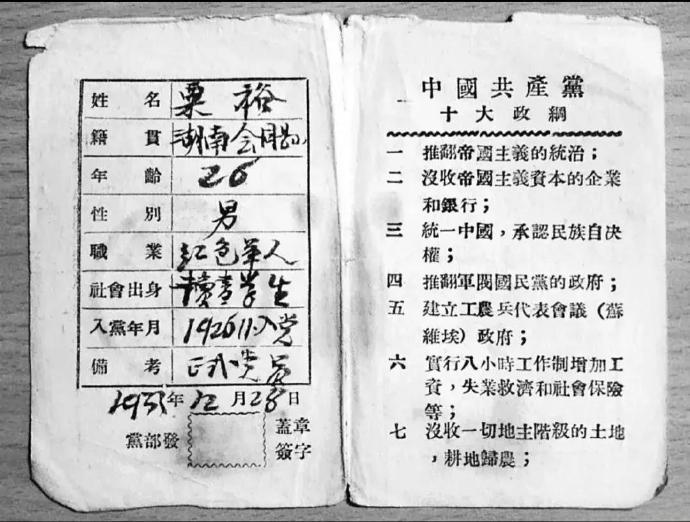 姓名 粟裕
籍貫 湖南会同
年齡 26
性别 男
職業 红色軍人
社會出身 讀書学生
入黨年月 1926 11.入党
備考 正式党员
1933年12月28日
黨部發
蓋章
簽字
中國共產黨
十大政綱
一 推翻帝國主義的統治；
二 沒收帝國主義資本的企業
和銀行；
三 統一中國，承認民族自决
權；
四 推翻軍閥國民黨的政府；
五 建立工農兵代表會議（蘇
維埃）政府；
六 實行八小時工作制增加工
資，失業救濟和社會保險
等；
七 沒收一切地主階級的土地
，耕地歸農；